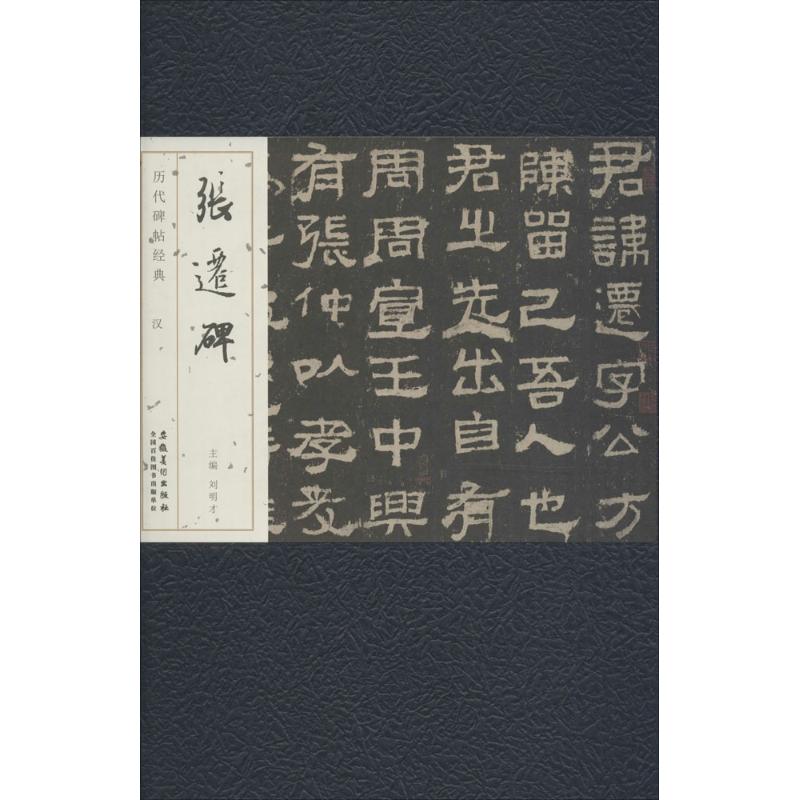 历代碑帖经典 汉
張遷碑
主编 刘明才
安徽美术出版社
全国百佳图书出版单位
君諱遷字公方
陳留己吾人也
君之先出自有
周周宣王中興
有張仲以孝友